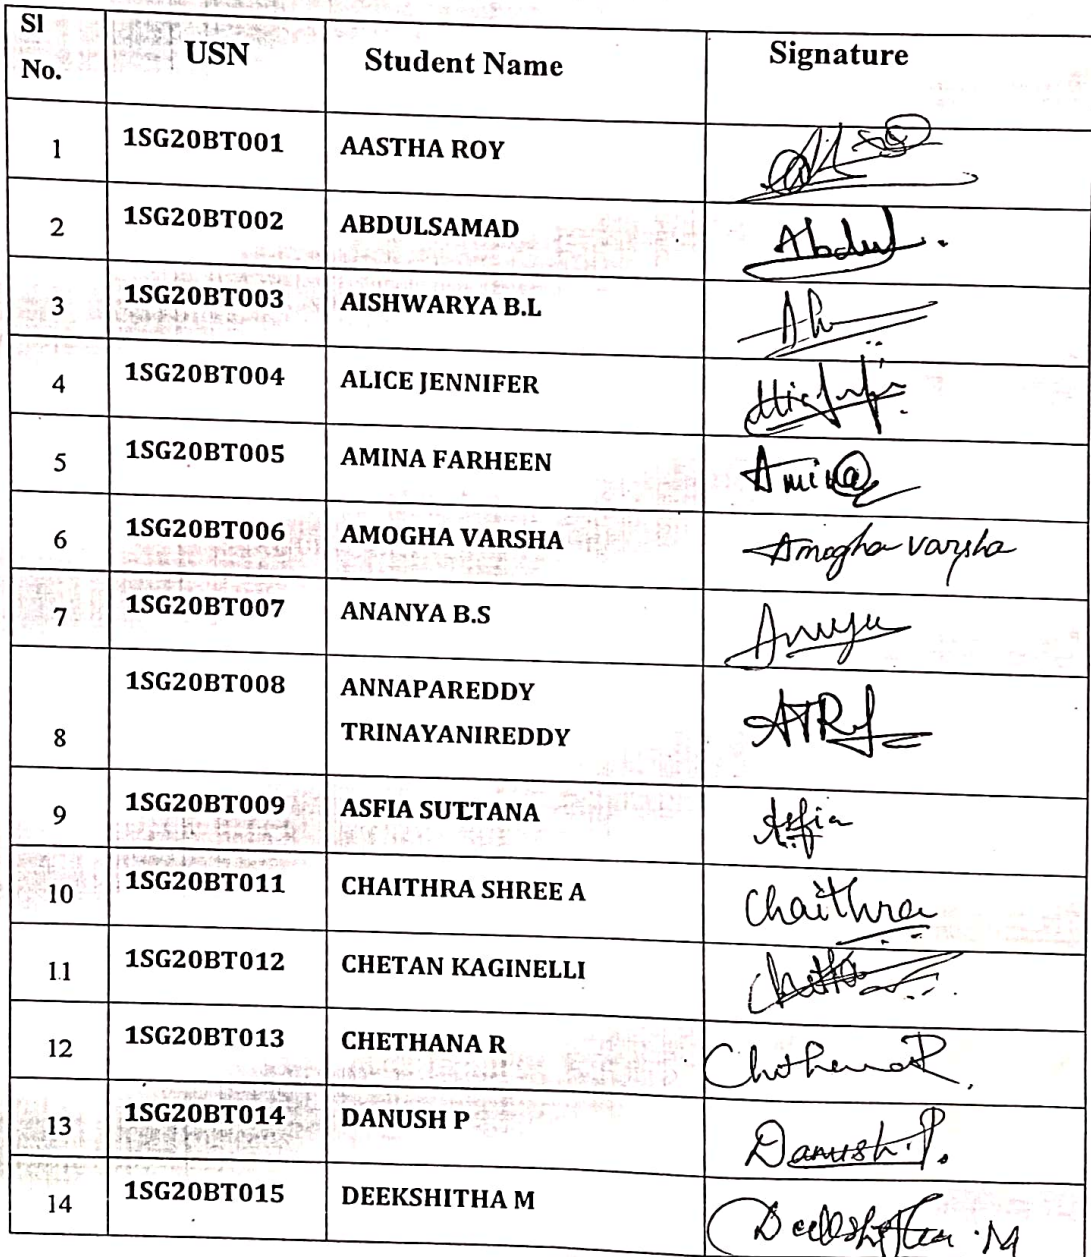 Sl No. USN Student Name Signature
1 1SG20BT001 AASTHA ROY
2 1SG20BT002 ABDULSAMAD Abdul.
3 1SG20BT003 AISHWARYA B.L
4 1SG20BT004 ALICE JENNIFER
5 1SG20BT005 AMINA FARHEEN Amina
6 1SG20BT006 AMOGHA VARSHA Amogha varsha
7 1SG20BT007 ANANYA B.S
8 1SG20BT008 ANNAPAREDDY
TRINAYANIREDDY
9 1SG20BT009 ASFIA SULTANA Asfia
10 1SG20BT011 CHAITHRA SHREE A Chaithra
11 1SG20BT012 CHETAN KAGINELLI
12 1SG20BT013 CHETHANA R Chethana R.
13 1SG20BT014 DANUSH P Danush.P.
14 1SG20BT015 DEEKSHITHA M Deekshitha .M